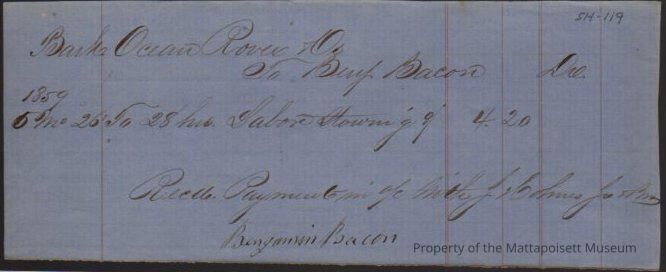 SH-119
Bark Ocean Rover &
To Benj. Bacon Dr.
1859
5 mo 26 To 28 hrs. Labor Stowing 4.20
Recd. Payment in a/c with J. Holmes Jr & Bro
Benjamin Bacon
Property of the Mattapoisett Museum